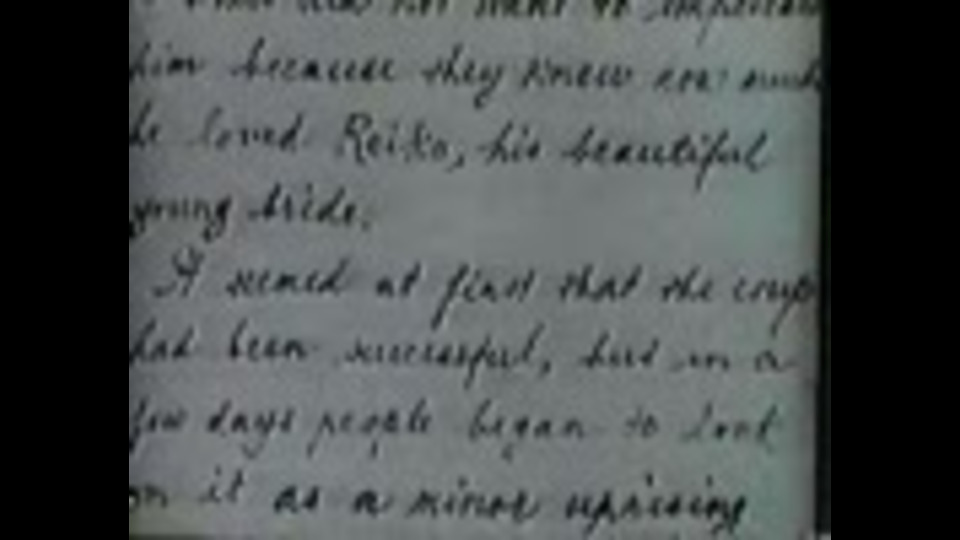 did not want to
him because they knew how much
he loved Reiko, his beautiful
young bride.
It seemed at first that the coup
had been successful, but in a
few days people began to look
on it as a minor uprising